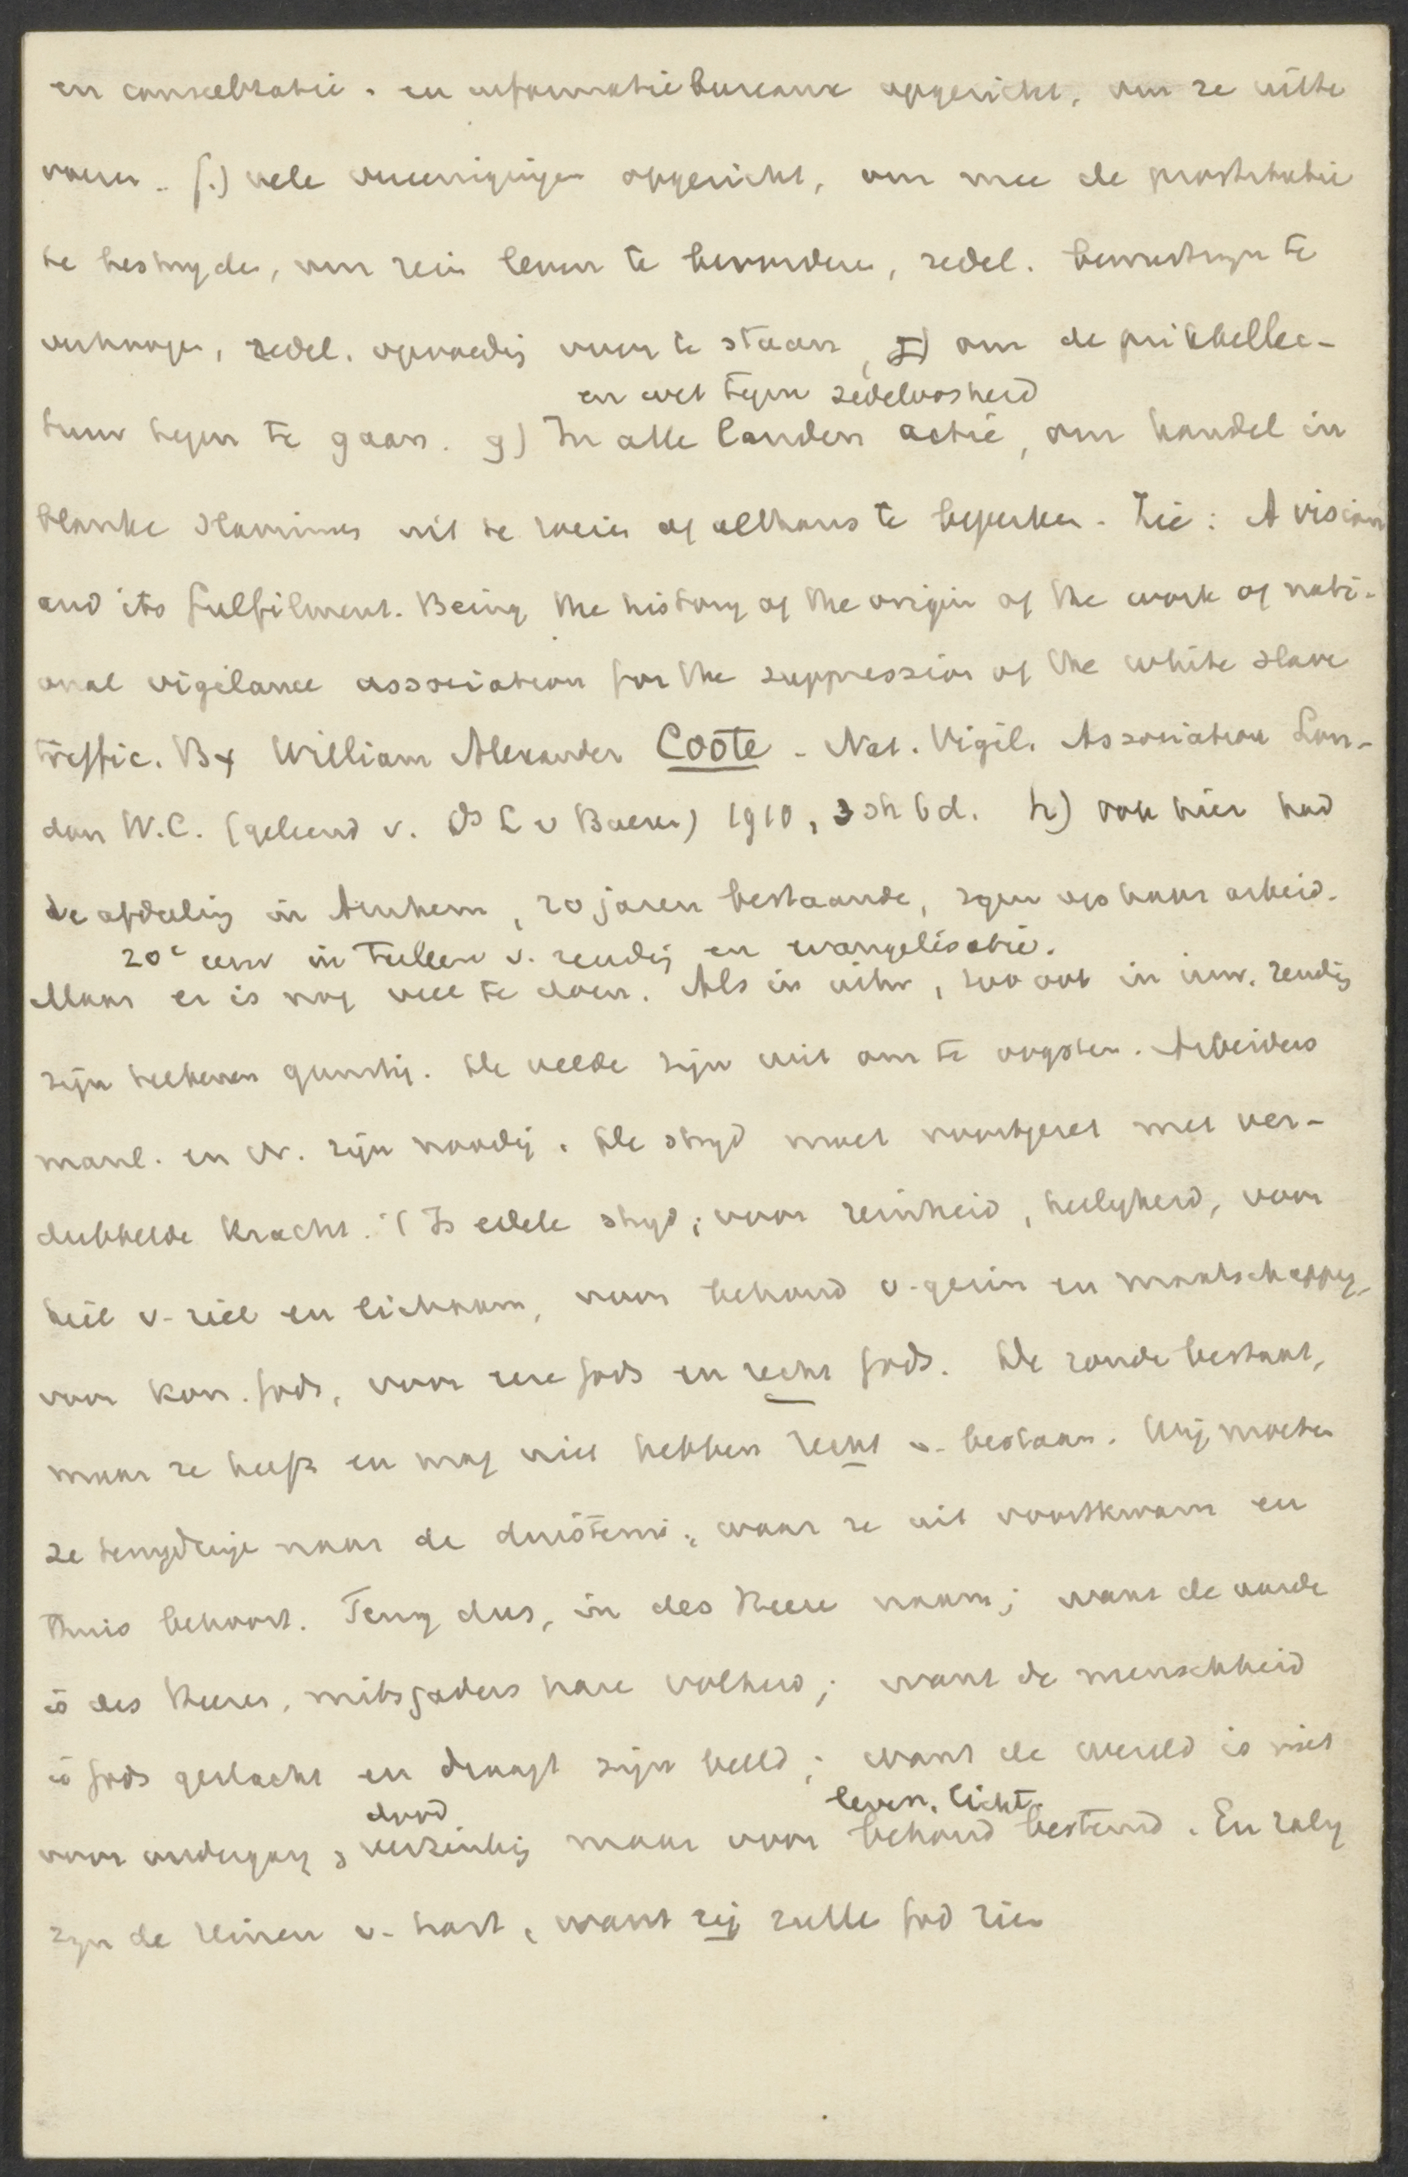 en consultatie- en informatiebureaux opgericht, om ze uit te
voeren. f.) vele vereenigingen opgericht, om mee de prostitutie
te bestrijden, om rein leven te bevorderen, zedel. bewustzijn te
verhoogen, zedel. opvoeding voor te staan, om de prikkellec-
tuur tegen te gaan.
en wet tegen zedeloosheid
g) In alle landen actie, om handel in
blanke slavinnen uit te roeien of althans te beperken. Zie: A vision
and its fulfilment. Being the history of the origin of the work of nati-
onal vigilance association for the suppression of the white slave
traffic. By William Alexander Coote - Nat. Vigil. Association Lon-
don W.C. (geleend v. Ds L v Baerer) 1910, 3 sh 6 d. h) ook hier had
de afdeeling in Arnhem, 20 jaren bestaande, zegen op haar arbeid.
20e eeuw in teeken v. zending en evangelisatie.
Maar er is nog veel te doen. Als in uitw, zoo ook in inw. zending
zijn teekenen gunstig. De velden zijn wit om te oogsten. Arbeiders
manl. en vr. zijn noodig. De strijd moet voortgezet met ver-
dubbelde kracht. 't Is edele strijd; voor reinheid, heiligheid, voor
heil v. ziel en lichaam, voor behoud v. gezin en maatschappij,
voor kon. Gods, voor eere Gods en recht Gods. De zonde bestaat,
maar ze heeft en mag niet hebben recht v. bestaan. Wij moeten
ze terugdringen naar de duisternis, waar ze uit voortkwam en
thuis behoort. Terug dus, in des Heeren naam; want de aarde
is des Heeren, mitsgaders hare volheid; want de menschheid
is Gods geslacht en draagt zijn beeld; want de wereld is niet
dood
leven. licht.
voor ondergang, maar voor behoud bestemd. En zalig
zijn de reinen v. hart, want zij zullen God zien